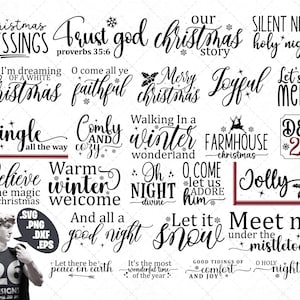 christmas
BLESSINGS
Trust god
proverbs 35:6
our
christmas
story
SILENT NIGHT
holy night
I'm dreaming
OF A WHITE
christmas
O come all ye
faithful
Merry
christmas
Joyful
Let's
mer
jingle
all the way
Comfy
AND
cozy
Walking In a
winter
wonderland
FARMHOUSE
christmas
DE
2
believe
in the magic
christmas
Warm
winter
welcome
Oh
NIGHT
divine
O COME
let us
ADORE
him
Jolly
.SVG
.PNG
.DXF
.EPS
And all a
good night
Let it
snow
Meet m
under the
mistletoe
Let there be
peace on earth
It's the most
wonderful time
of the year
GOOD THINGS OF
comfort
AND
joy
O HOLY
night